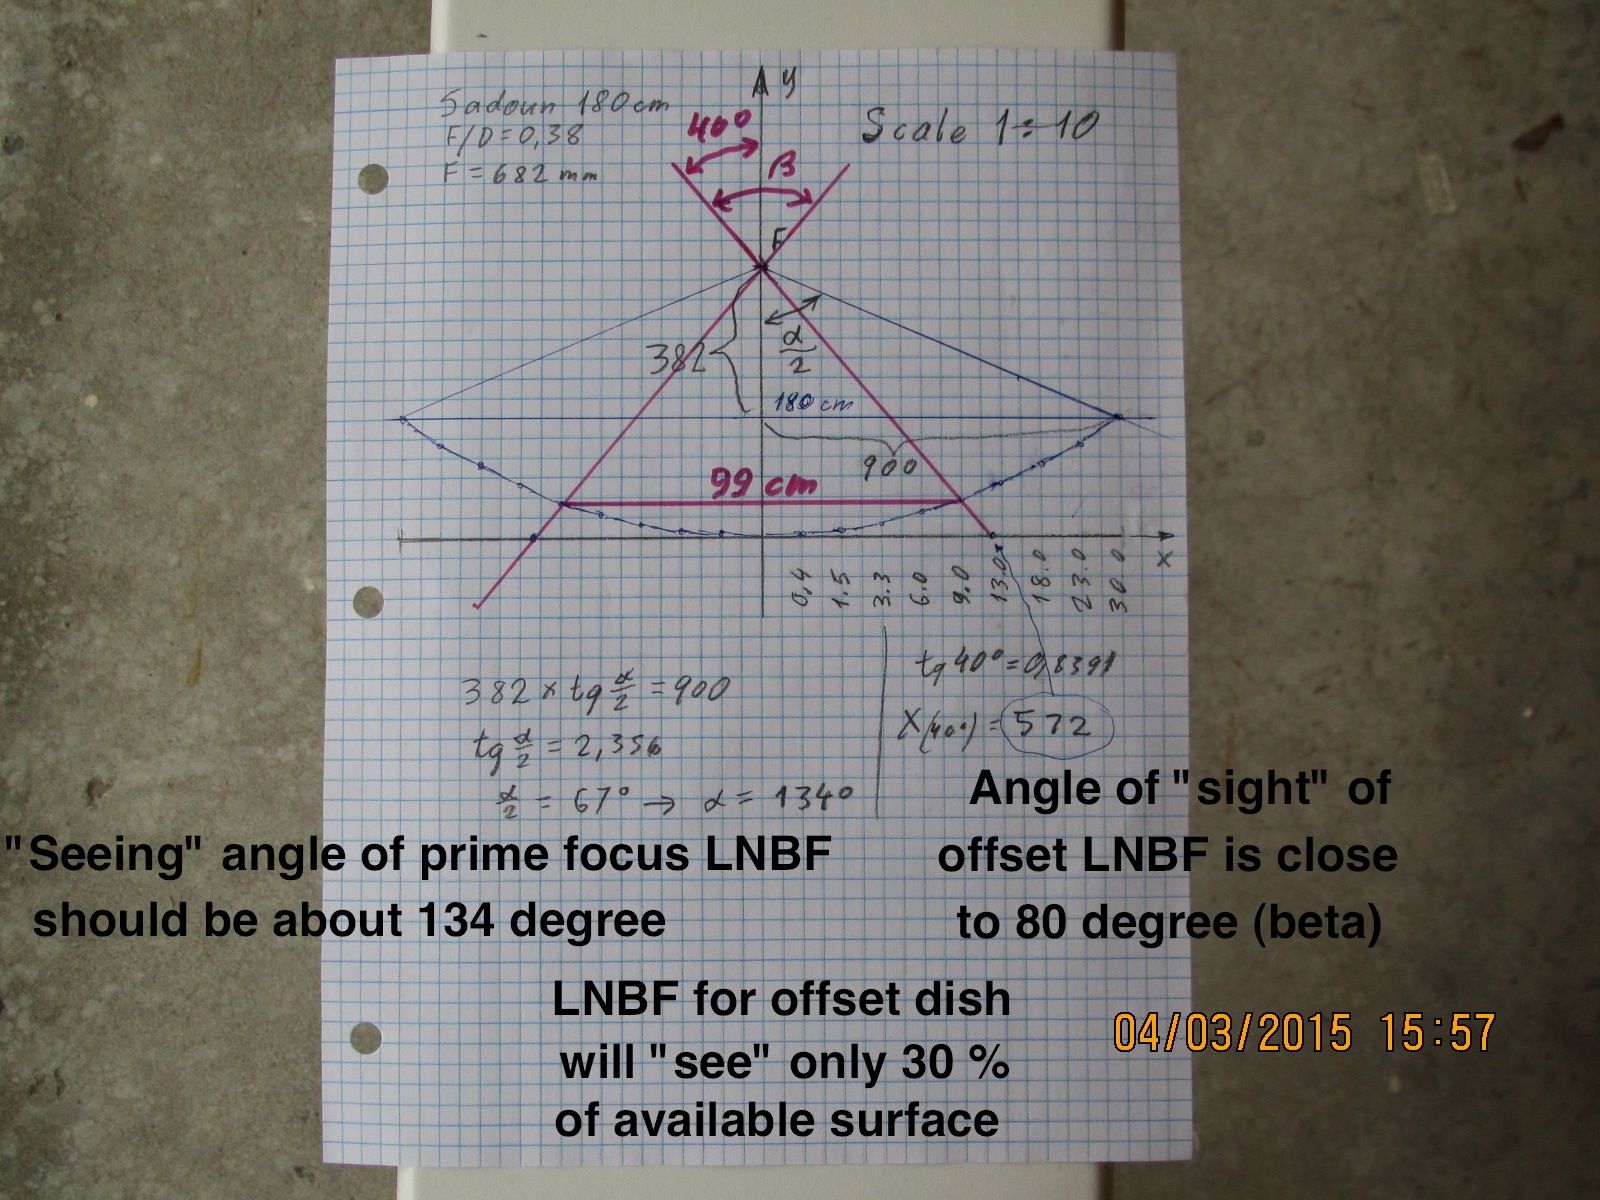 Sadoun 180cm
F/D=0,38
F=682 mm
y
Scale 1÷10
40°
β
F
382
α/2
180 cm
900
99 cm
x
0,4
1.5
3.3
6.0
9.0
13.0
18.0
23.0
30.0
382 × tg α/2 = 900
tg α/2 = 2,356
α/2 = 67° → α = 134°
tg 40° = 0,8391
X(40°) = 572
Angle of "sight" of
offset LNBF is close
to 80 degree (beta)
"Seeing" angle of prime focus LNBF
should be about 134 degree
LNBF for offset dish
will "see" only 30 %
of available surface
04/03/2015 15:57